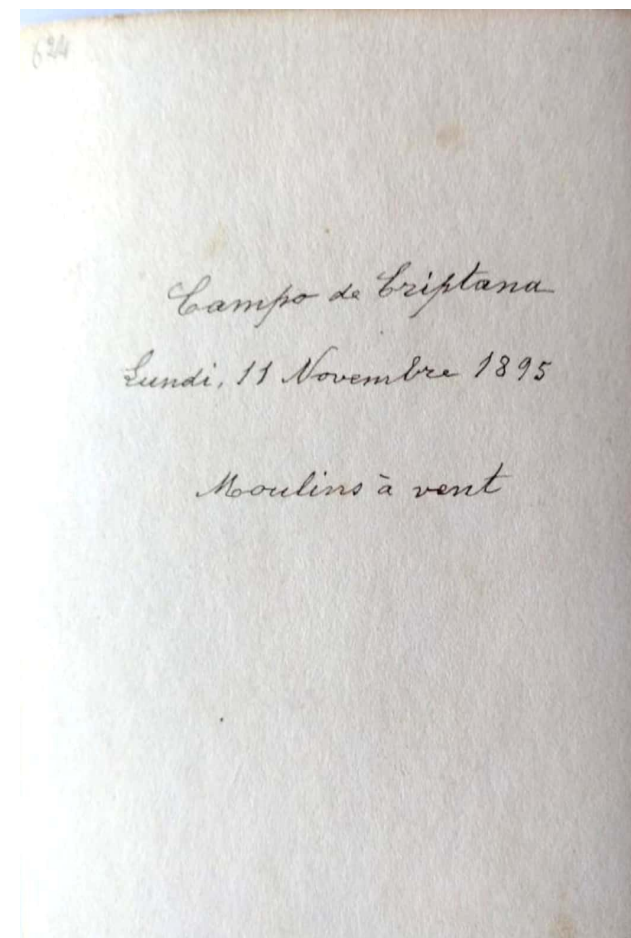 624
Campo de Criptana
Lundi, 11 Novembre 1895
Moulins à vent